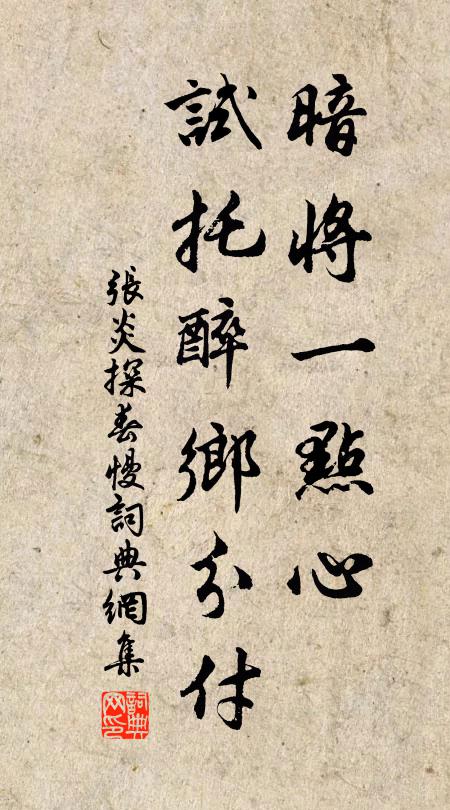 暗將一點心
試托醉鄉分付
張炎探春慢詞典網集
詞典网印